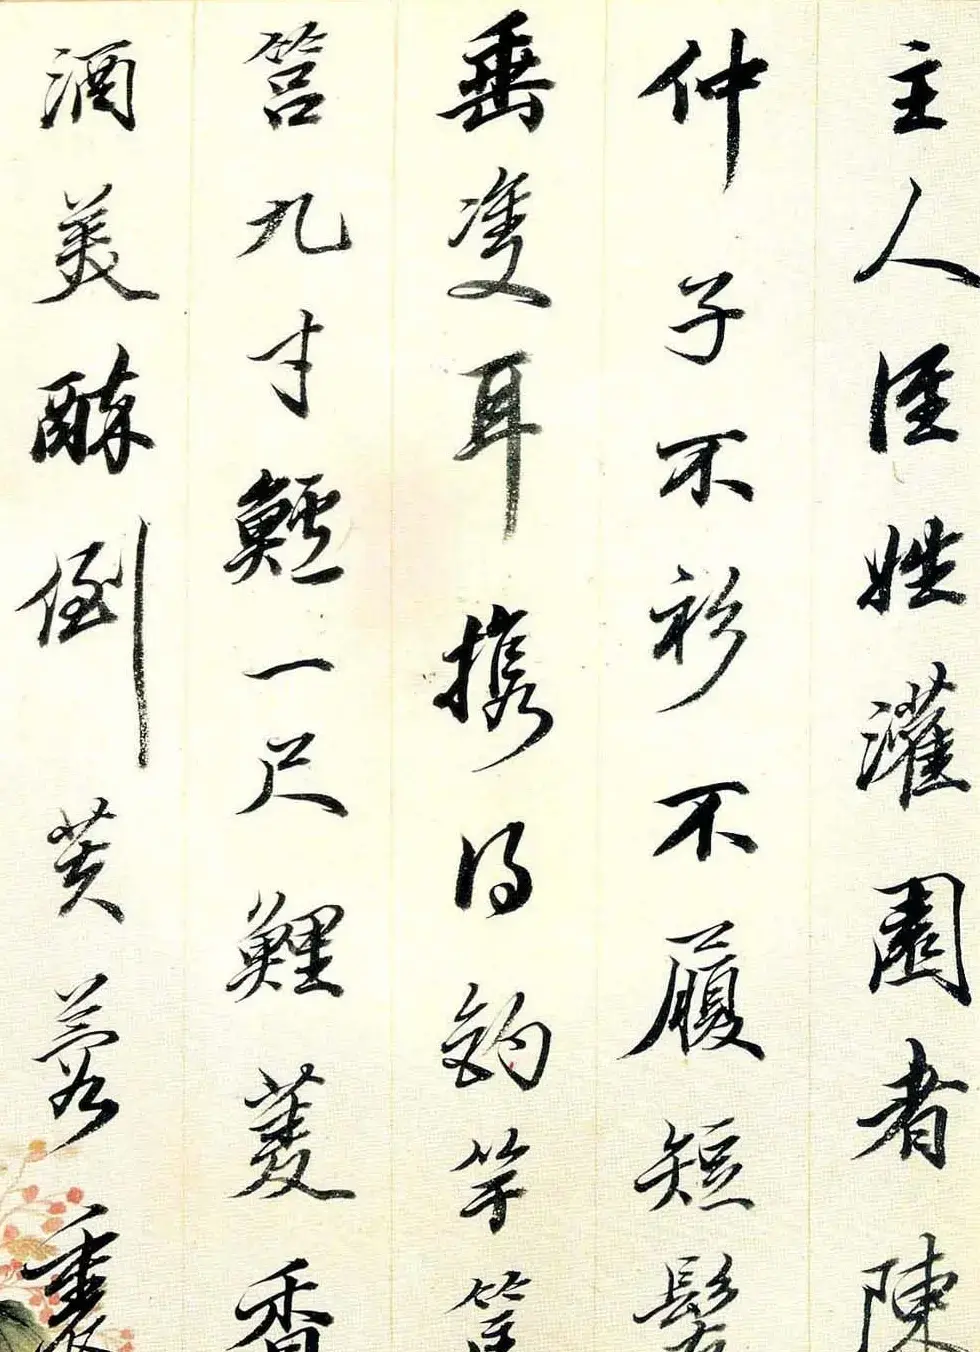 主人姓灌園者陳
仲子不衫不履短髮
垂雙耳攜得釣竿筐
筥九寸鱸一尺鯉菱香
酒美醉倒芙蓉裏